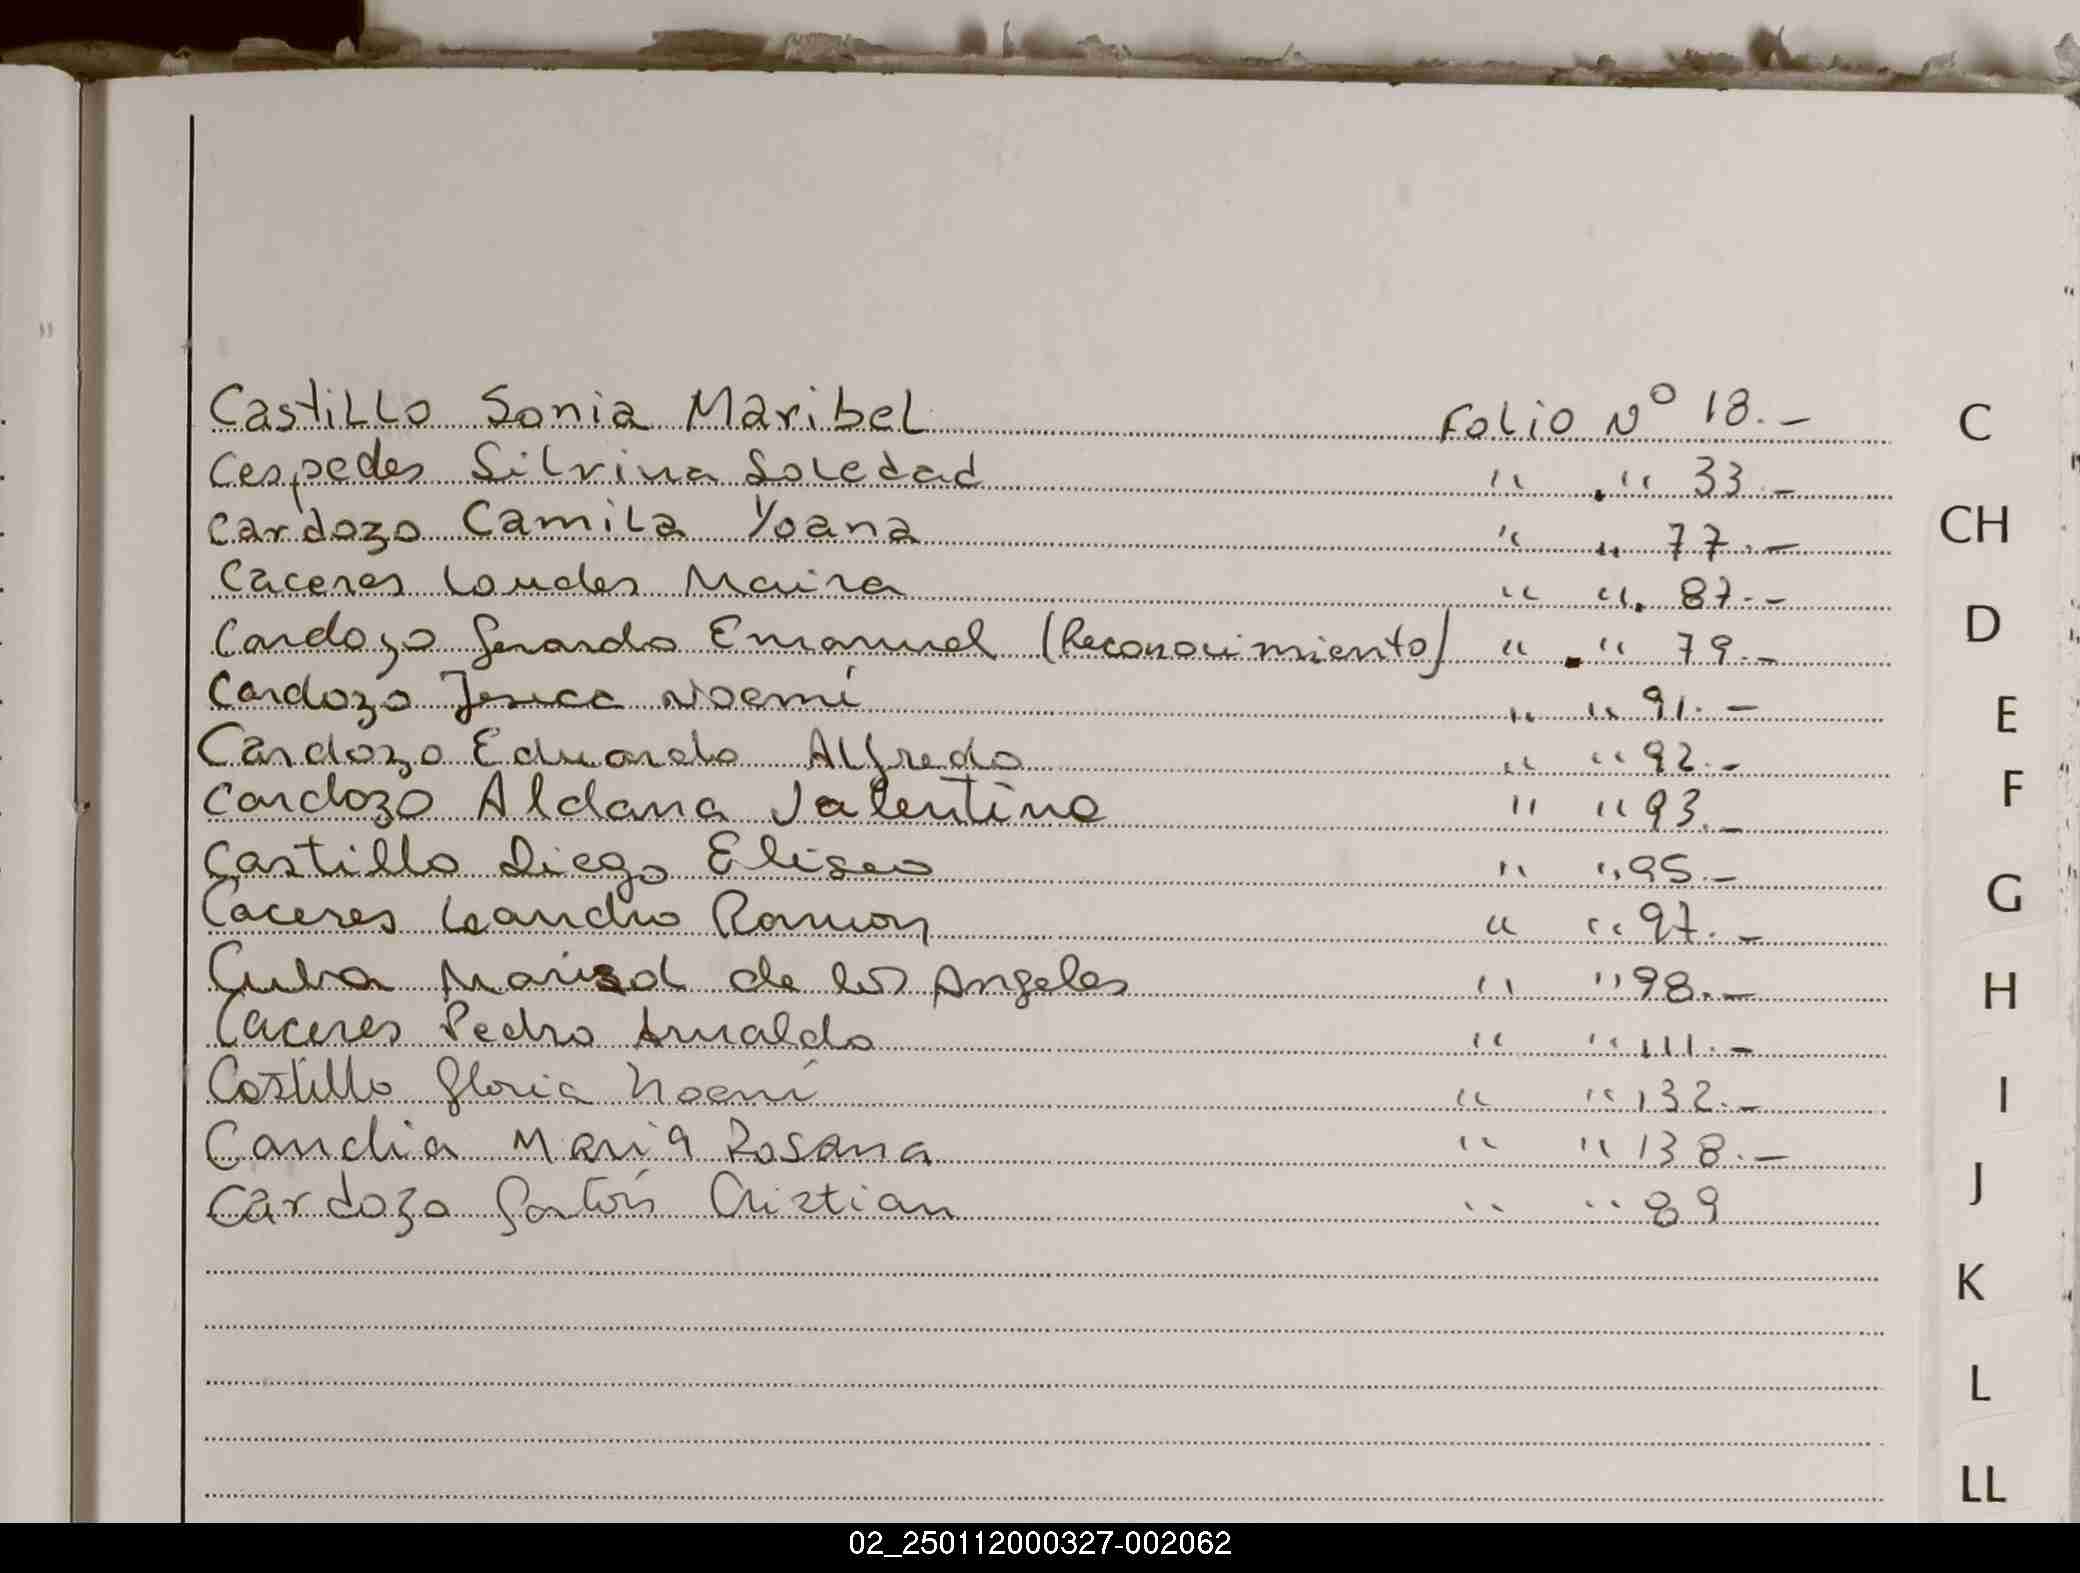 Castillo Sonia Maribel Folio Nº 18.-
Cespedes Silvina Soledad " " 33.-
Cardozo Camila Yoana " " 77.-
Caceres Loudes Maira " " 87.-
Cardozo Gerardo Emanuel (Reconocimiento) " " 79.-
Cardozo Jesica Noemí " " 91.-
Cardozo Eduardo Alfredo " " 92.-
Cardozo Aldana Valentina " " 93.-
Castillo Diego Eliseo " " 95.-
Caceres Leandro Ramon " " 97.-
Cuba Marisol de los Angeles " " 98.-
Caceres Pedro Arnaldo " " 111.-
Castillo Gloria Noemí " " 132.-
Candia Maria Rosana " " 138.-
Cardozo Gastón Cristian " " 89
C
CH
D
E
F
G
H
I
J
K
L
LL
02_250112000327-002062